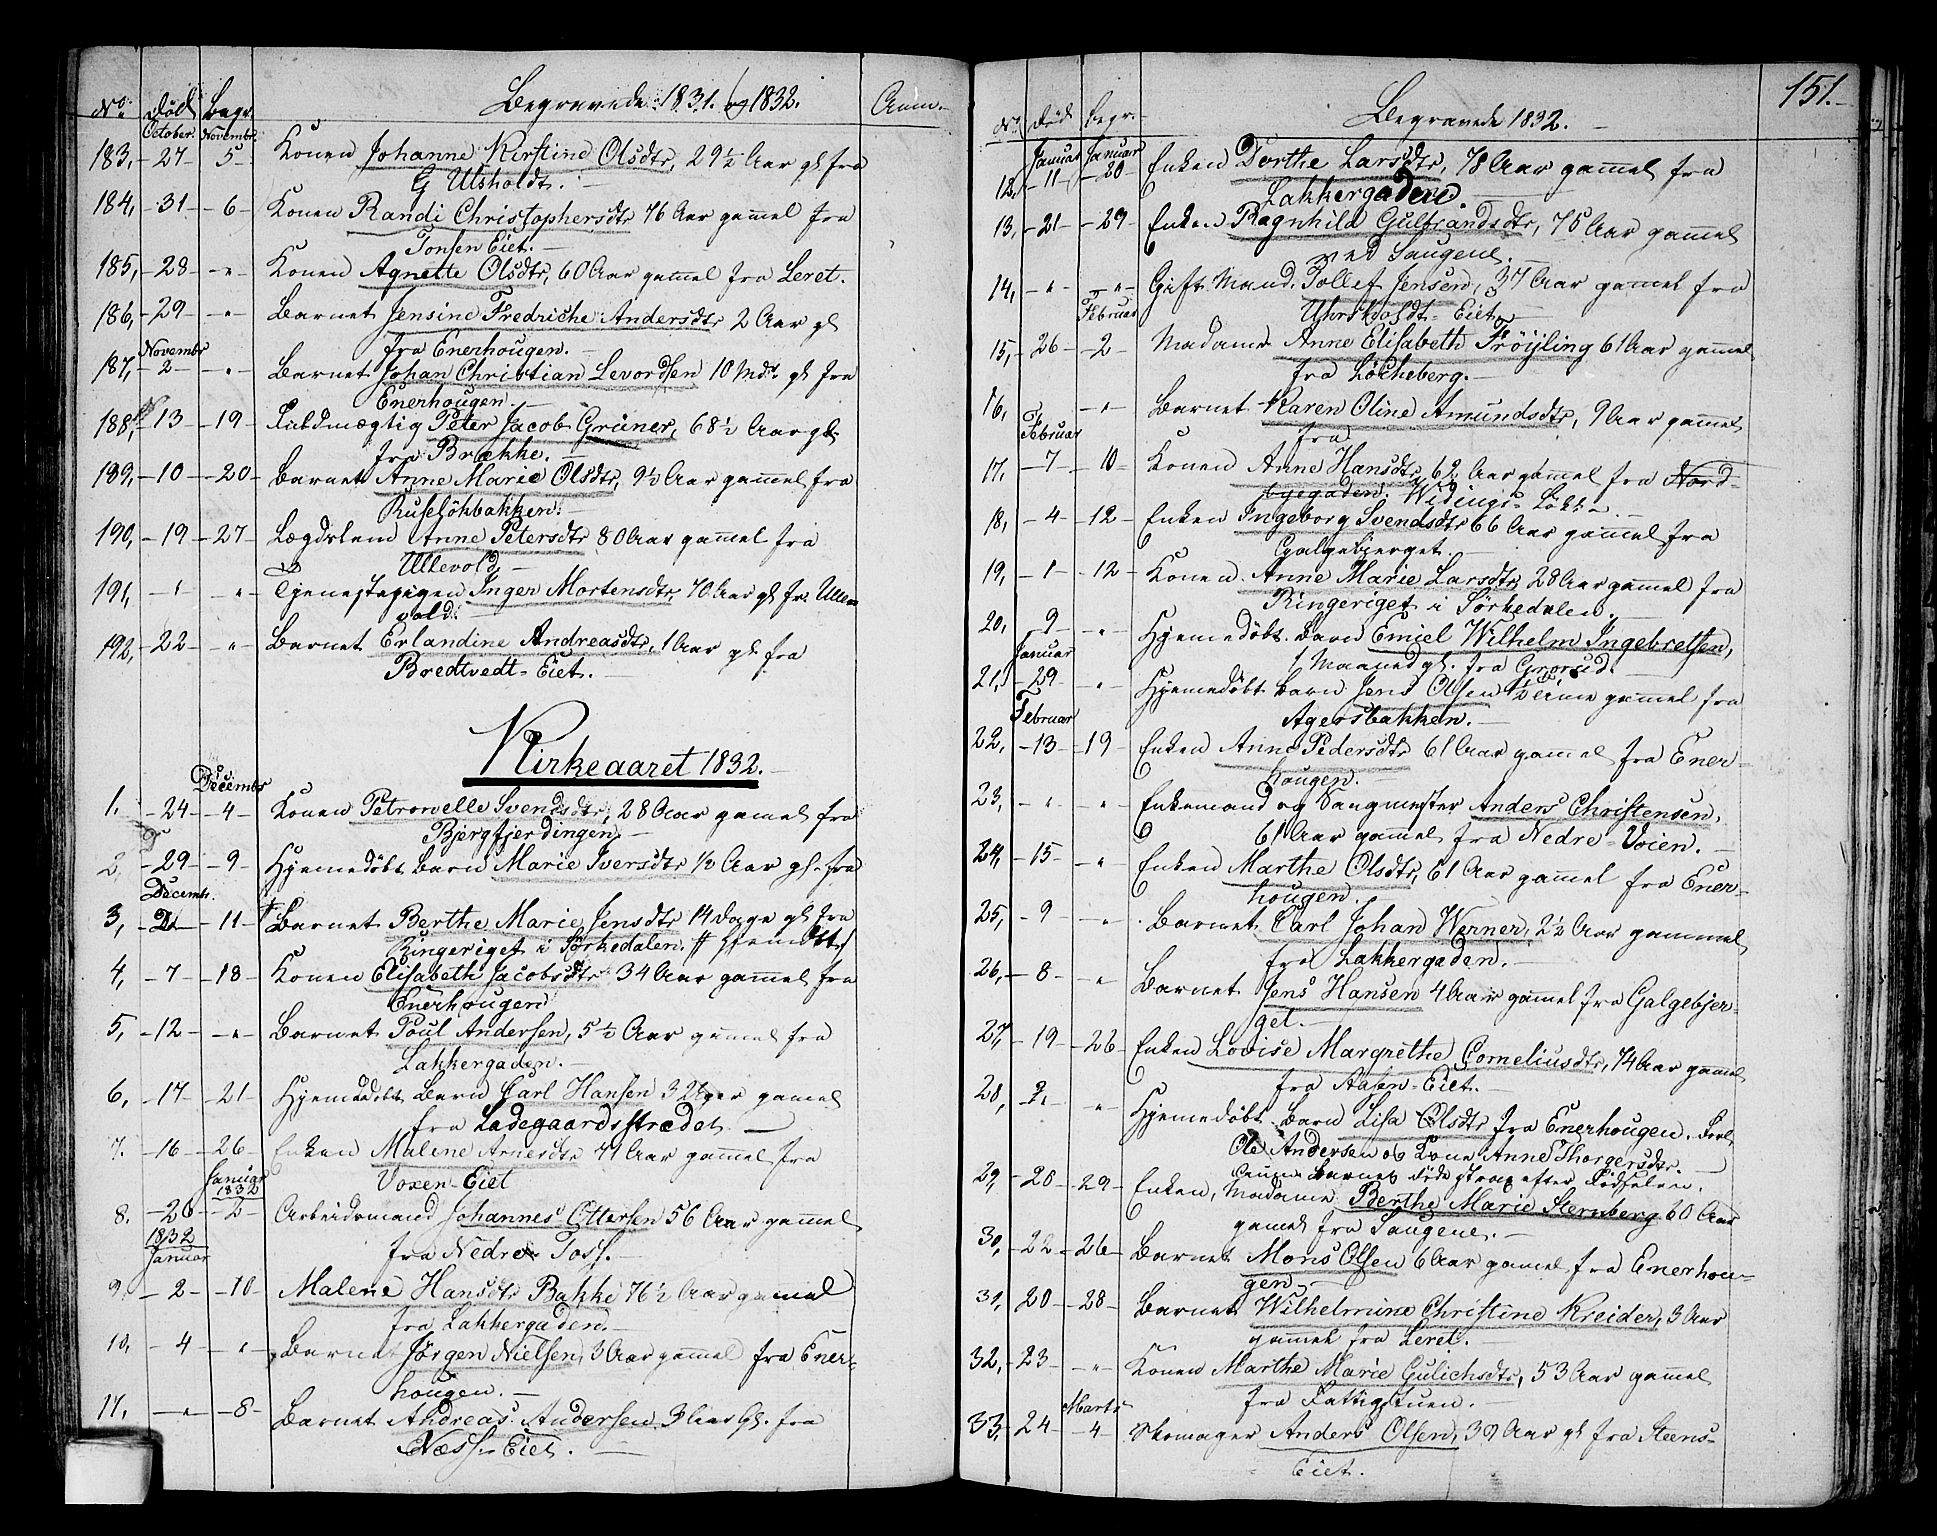 No. Død Begr. Begravede 1831. og 1832. Anm.
October. Novembr.
183, -27- 5- Konen Johanne Kirstine Olsdtr, 29 1/2 Aar gl fra
G Ulsholdt.
184, -31- -6- Konen Randi Christophersdtr 76 Aar gamel fra
Tonsen Eiet.
185, -28- -"- Konen Agnette Olsdtr, 60 Aar gamel fra Leret.
186, -29- " Barnet Jensine Fredriche Andersdtr 2 Aar gl
fra Enerhougen.
Novembr
187, -2- " Barnet Johan Christian Levordsen 10 Mdr gl fra
Enerhougen.
188, -13- -19- Fuldmægtig Peter Jacob Grüner, 68 1/2 Aar gl
fra Brække.
189, -10- -20- Barnet Anne Marie Olsdtr, 9 1/2 Aar gammel fra
Ruseløkbakken.
190, -19- -27- Lægdslem Anne Petersdtr 80 Aar gammel fra
Ullevold
191, " " Tjenestepigen Inger Mortensdtr, 70 Aar gl fr. Ulle=
vold.
192, -22- " Barnet Erlandine Andreasdtr, 1 Aar gl fra
Bredtvedt-Eiet.
Kirkeaaret 1832.
Decembr
1. -24- -4- Konen Petronelle Svendsdtr, 28 Aar gamel fra
Bjergfjerdingen
2, -29- -9- Hjemedøbt Barn Marie Iversdtr 1/2 Aar gl. fra
Decembr.
3, -11- Barnet Berthe Marie Jensdtr 14 dage gl fra
Ringeriget i Sørkedalen.
4, -7- -18- Konen Elisabeth Jacobsdtr 34 Aar gamel fra
Enerhougen
5, -12- -"- Barnet Poul Andersen, 5 1/2 Aar gamel fra
Lakkergaden.
6, -17- -21 Hjemedøbt Barn Carl Hansen 3 Uger gamel
fra Ladegaardsstrædet
7. -16- 26- Enken Malene Arnesdtr 71 Aar gamel fra
Voxen-Eiet
Januar 1832
8. -26- -2- Arbeidsmand Johannes Ottersen 56 Aar gammel
fra Nedre Foss.
1832
Januar
9, -2- -10- Malene Hansdtr Bakke 76 1/2 Aar gamel
fra Lakkergaden.
10, -4- " Barnet Jørgen Nielsen, 3 Aar gamel fra Ener-
hougen.
11, -"- -8- Barnet Andreas Andersen 3 Aar Gl. fra
Næss-Eiet.
151.
No. Død Begr. Begravede 1832.
Januar Januar
12, -11- -20- Enken Dorthe Larsdtr, 78 Aar gamel fra
Lakkergaden.
13, -21- -29- Enken Ragnhild Gulbrandsdtr, 75 Aar gamel
ved Saugene.
14, -"- -"- Gift Mand, Tollef Jensen, 37 Aar gamel fra
Eiet
Februar
15, -26- -2- Madame Anne Elisabeth Frøijling 61 Aar gamel
fra Løcheberg.
16, -"- Barnet Karen Oline Amundsdtr, 9 Aar gamel
fra
Februar
17, -7- -10- Konen Anne Hansdtr, 62 Aar gamel fra Nord-
byegaden. Widings Løkke.
18, -4- -12- Enken Ingeborg Svendsdtr 66 Aar gamel fra
Galgebjerget.
19, -1- -12- Konen Anne Marie Larsdtr, 28 Aar gamel fra
Ringeriget i Sørkedalen.
20, 9- -"- Hjemedøbt Barn Emiel Wilhelm Ingebretsen,
1 Maaned gl. fra Grorud.
Januar
21, -29- " Hjemedøbt Barn Jens Olsen 1/2 gamel fra
Agersbakken.
Februar
22, -13- -19- Enken Anne Pedersdtr 61 Aar gamel fra Ener-
hougen.
23, -"- -"- Enkemand og Sangmester Anders Christensen,
61 Aar gammel fra Nedre-Voien.
24, -15- -"- Enken Marthe Olsdtr, 61 Aar gamel fra Ener-
hougen.
25, -9- " Barnet Carl Johan Werner, 2 1/2 Aar gammel
fra Lakkergaden.
26, -8- " Barnet Jens Hansen 4 Aar gamel fra Galgebjer-
get.
27, -19- -26- Enken Lovise Margrethe Corneliusdtr, 74 Aar gamel
fra Aasen-Eiet.
28, 2. " Hjemedøbt Barn Lisa Olsdtr fra Enerhougen. Forl
Ole Andersen og Kone Anne Thorgersdtr.
Barnet døde strax efter Fødselen.
29, -20- -29- Enken, Madame Berthe Marie Sternberg 60 Aar
gamel fra Saugene.
30, -22- -26- Barnet Mons Olsen 6 Aar gamel fra Enerhou-
gen.
31, 20- -28- Barnet Wilhelmine Christine Kreider, 3 Aar
gamel fra Leret.
32, -23- -"- Konen Marthe Marie Gulichsdtr, 53 Aar gamel
fra Fattigstuen.
Marts
33, -24- -4- Skomager Anders Olsen, 39 Aar gl fra Steens-
Eiet.